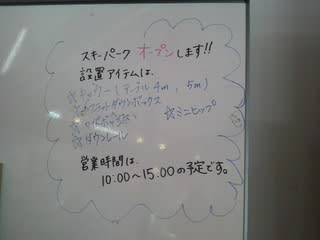 スキーパーク オープンします!!
設置アイテムは、
☆キッカー(テーブル4m, 5m)
☆フラットダウンボックス
☆ミニヒップ
☆ダウンレール
営業時間は、
10:00～15:00の予定です。